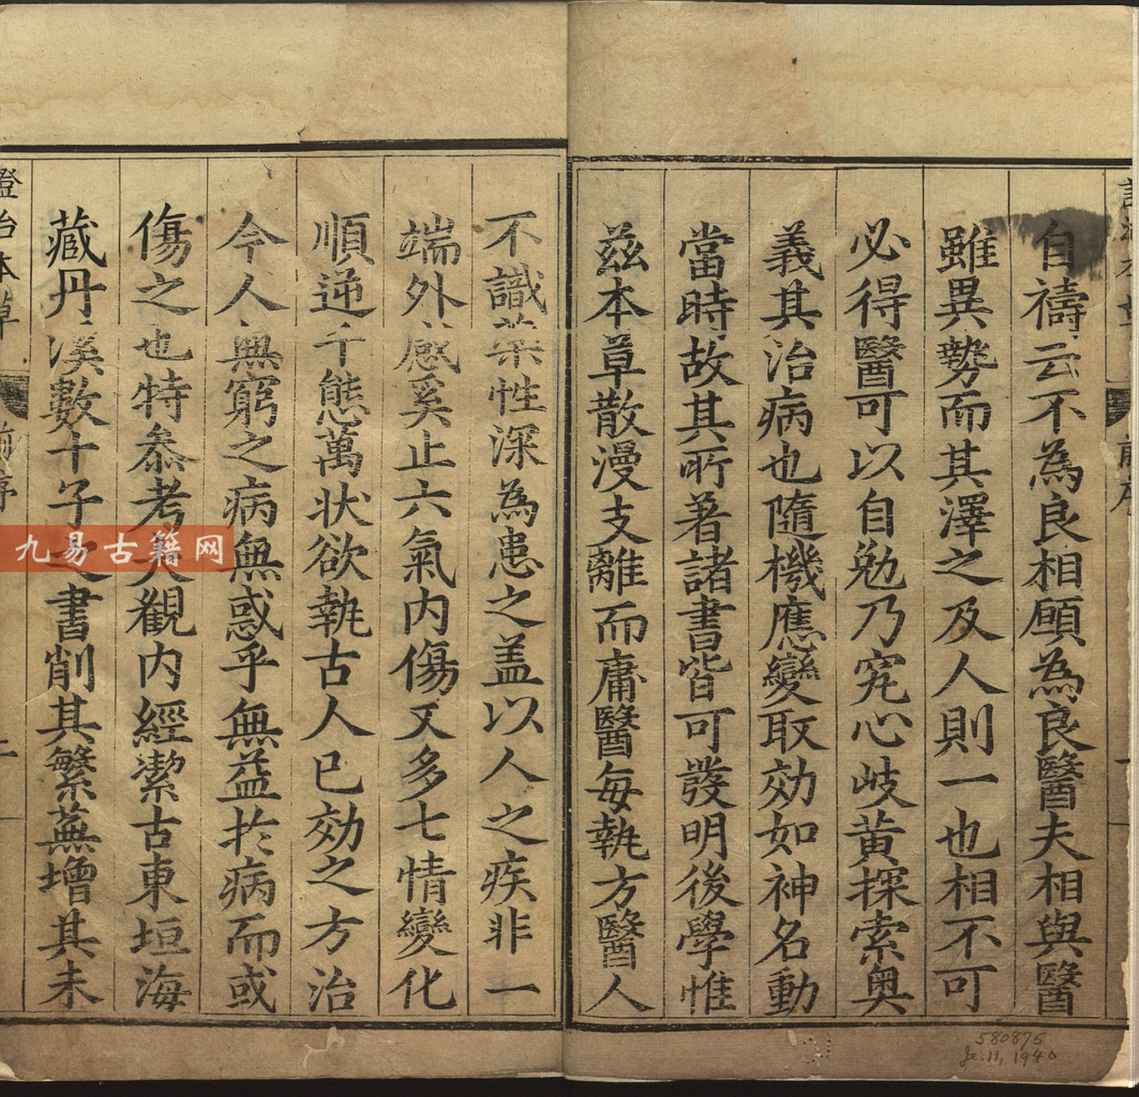 自禱云不為良相願為良醫夫相與醫
雖異勢而其澤之及人則一也相不可
必得醫可以自勉乃究心岐黃探索奧
義其治病也隨機應變取効如神名動
當時故其所著諸書皆可發明後學惟
玆本草散漫支離而庸醫每執方醫人
不識藥性深為患之盖以人之疾非一
端外感奚止六氣內傷又多七情變化
順逆千態萬狀欲執古人已効之方治
今人無窮之病無惑乎無益扵病而或
傷之也特叅考大觀內經潔古東垣海
藏丹溪數十子之書削其繁蕪增其未
證治本草 前序
九易古籍网
580876
Je. 11, 1940